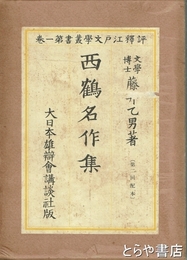 評釋江戸文學叢書第一卷
文學博士 藤井乙男著
西鶴名作集
(第一回配本)
大日本雄辯會講談社版
とらや書房